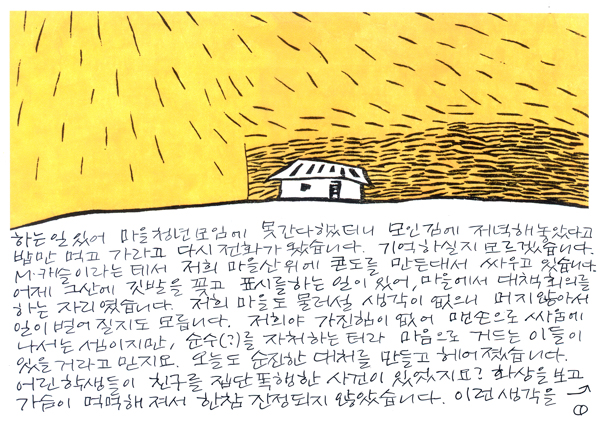 하는 일 있어 마을청년모임에 못간다 했더니 모인김에 저녁해놓았다고
밥만 먹고 가라고 다시 전화가 왔습니다. 기억하실지 모르겠습니다.
M·캐슬이라는데서 저희 마을산 위에 콘도를 만든대서 싸우고 있습니다.
어제 그산에 깃발을 꽂고 표시를 하는 일이 있어, 마을에서 대책회의를
하는 자리였습니다. 저희 마을도 물러설 생각이 없으니 머지않아서
일이 벌어질지도 모릅니다. 저희야 가진힘이 없어 맨손으로 싸움에
나서는 셈이지만, 순수(?)를 자처하는 터라 마음으로 거드는 이들이
있을거라고 믿지요. 오늘도 순진한 대처를 만들고 헤어졌습니다.
어린 학생들이 친구를 집단 폭행한 사건이 있었지요? 화상을 보고
가슴이 먹먹해져서 한참 진정되지 않았습니다. 이런 생각을 →
①